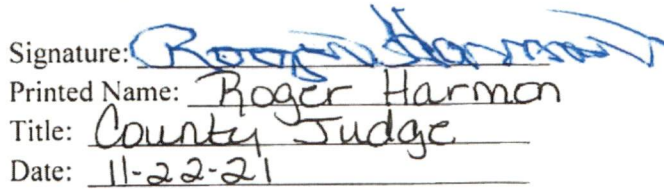 Signature: Roger Harmon
Printed Name: Roger Harmon
Title: County Judge
Date: 11-22-21